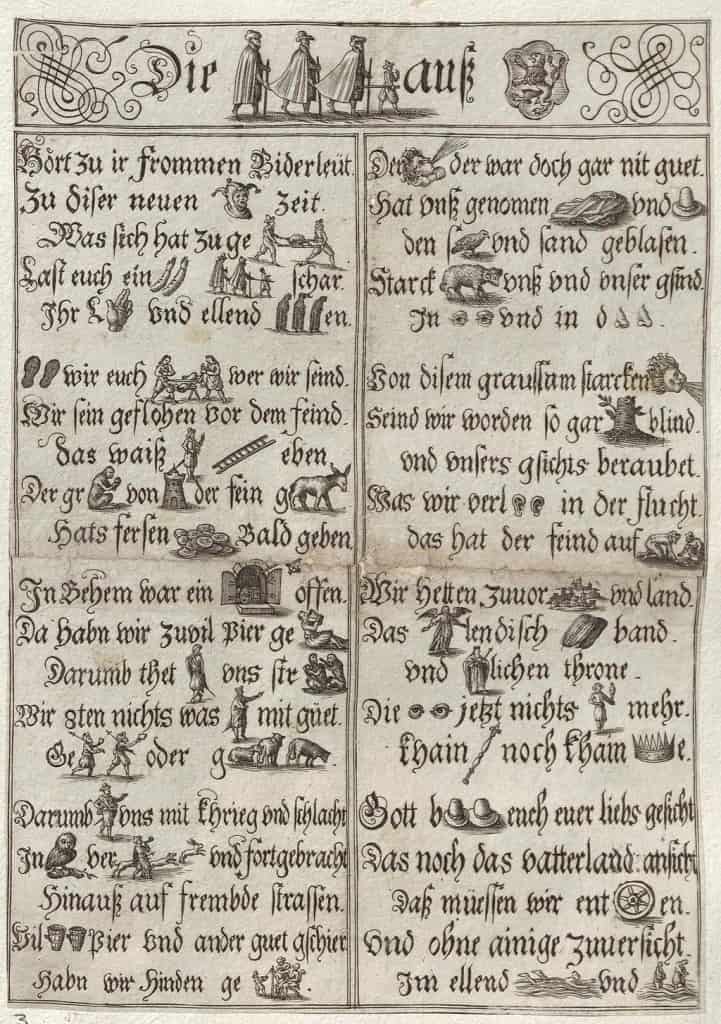 Die auß
Hört zu ir frommen Biderleüt.
Zu diser neuen zeit.
Was sich hat zu ge
Last euch ein schar.
Ihr L und ellend en.
wir euch wer wir seind.
Wir sein geflohen vor dem feind.
das waiß eben
Der gr von der fein g
Hats fersen Bald geben
In Behem war ein offen.
Da habn wir zuvil Pier ge
Darumb thet vns str
Wir 8ten nichts was mit güet.
Ge oder g
Darumb vns mit Khrieg vnd schlacht
In ver vnd fortgebracht
Hinauß auf frembde strassen.
Vil Pier Vnd ander guet gschier
Habn wir Hinden ge .
Der der war doch gar nit guet.
Hat vnß genomen vnd
den s vnd sand geblasen.
Starck vnß vnd vnser gsind.
In vnd in d .
Von disem graussam starcken
Seind wir worden so gar blind.
vnd vnsers gsichts beraubet.
Was wir verl in der flucht.
das hat der feind auf
Wir Hetten zuuor vnd land.
Das lendisch band.
vnd lichen throne.
Die jetzt nichts mehr.
Khain noch Kham e.
Gott b euch euer liebs gesicht
Das noch das vatterland: ansicht
Daß müessen wir ent en.
Vnd ohne ainige zuuersicht.
Im ellend vnd
3